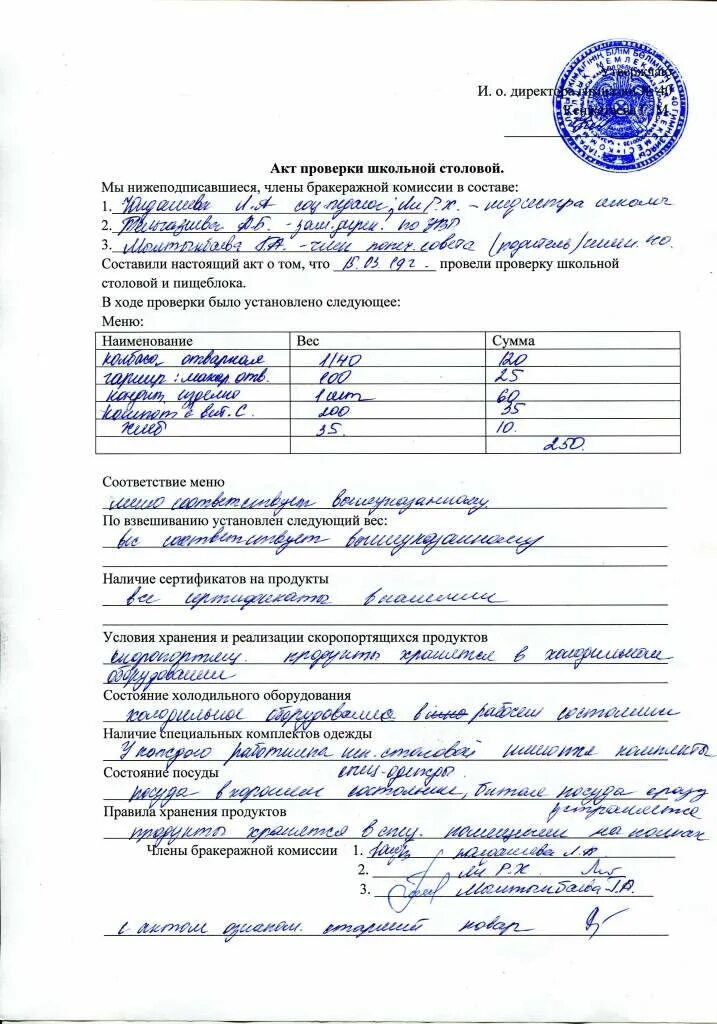 Утверждаю
И. о. директора гимназии № 40
Акт проверки школьной столовой.
Мы нижеподписавшиеся, члены бракеражной комиссии в составе:
1. Л.А соц педагог, Ли Р.Х. - медсестра школы
2. А.Б. - зам. дирек. по
3. Молтынбаева Г.А. - член попеч. совета (родитель)
Составили настоящий акт о том, что 15.03.19г. провели проверку школьной
столовой и пищеблока.
В ходе проверки было установлено следующее:
Меню:
Наименование Вес Сумма
колбаса отварная 1/40 120
гарнир: макар. отв. 100 25
кондит. изделие 1 шт 60
компот с вит. С. 200 35
хлеб 35. 10.
250.
Соответствие меню
меню соответствует вышеуказанному.
По взвешиванию установлен следующий вес:
вес соответствует вышеуказанному
Наличие сертификатов на продукты
все сертификаты в наличии
Условия хранения и реализации скоропортящихся продуктов
скоропортящ. продукты хранятся в холодильном
оборудовании
Состояние холодильного оборудования
холодильное оборудование в рабочем состоянии
Наличие специальных комплектов одежды
У каждого работника шк. столовой имеются комплекты
спец-одежды.
Состояние посуды
посуда в хорошем состоянии, битая посуда сразу
устраняется
Правила хранения продуктов
продукты хранятся в спец. помещении на полках
Члены бракеражной комиссии 1.
2. Ли Р.Х.
3. Молтынбаева Г.А.
с актом ознаком. старший повар